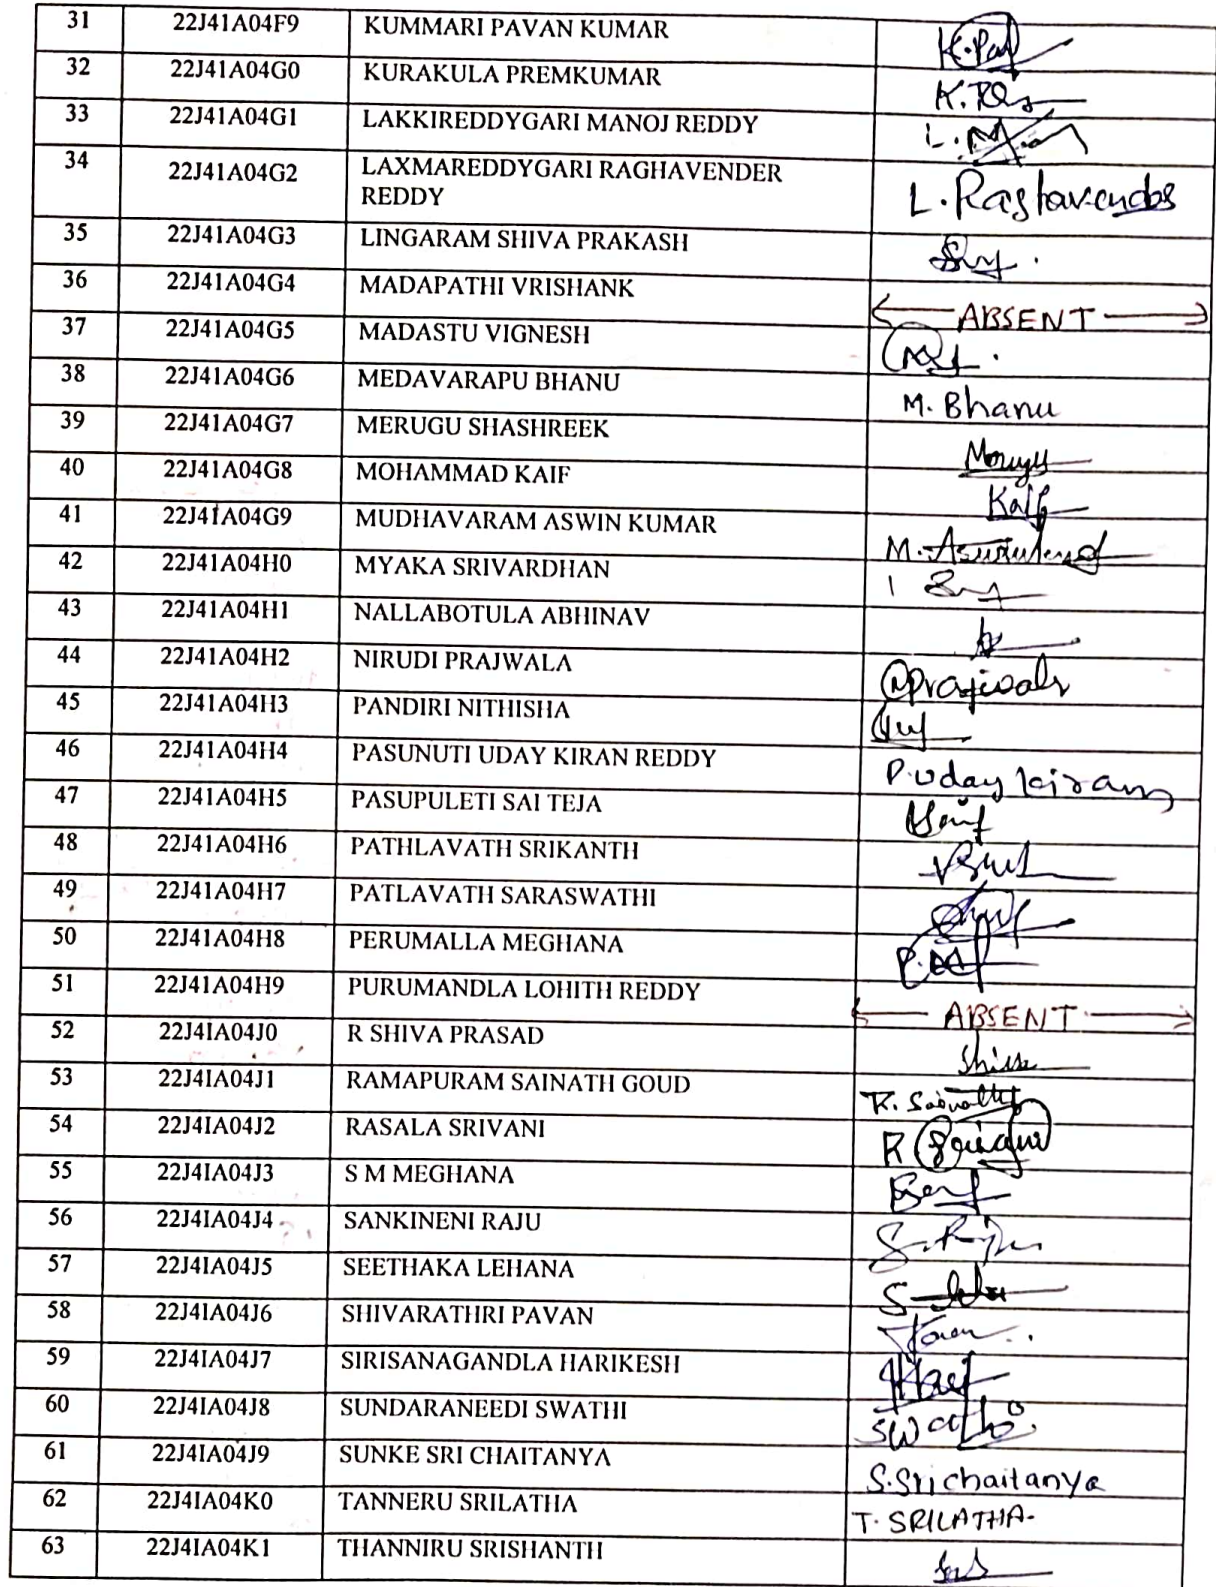 31 22J41A04F9 KUMMARI PAVAN KUMAR
32 22J41A04G0 KURAKULA PREMKUMAR
33 22J41A04G1 LAKKIREDDYGARI MANOJ REDDY
34 22J41A04G2 LAXMAREDDYGARI RAGHAVENDER
REDDY
35 22J41A04G3 LINGARAM SHIVA PRAKASH
36 22J41A04G4 MADAPATHI VRISHANK ABSENT
37 22J41A04G5 MADASTU VIGNESH
38 22J41A04G6 MEDAVARAPU BHANU M. Bhanu
39 22J41A04G7 MERUGU SHASHREEK
40 22J41A04G8 MOHAMMAD KAIF Kaif
41 22J41A04G9 MUDHAVARAM ASWIN KUMAR
42 22J41A04H0 MYAKA SRIVARDHAN
43 22J41A04H1 NALLABOTULA ABHINAV
44 22J41A04H2 NIRUDI PRAJWALA
45 22J41A04H3 PANDIRI NITHISHA
46 22J41A04H4 PASUNUTI UDAY KIRAN REDDY P. uday kiran
47 22J41A04H5 PASUPULETI SAI TEJA
48 22J41A04H6 PATHLAVATH SRIKANTH
49 22J41A04H7 PATLAVATH SARASWATHI
50 22J41A04H8 PERUMALLA MEGHANA
51 22J41A04H9 PURUMANDLA LOHITH REDDY ABSENT
52 22J4IA04J0 R SHIVA PRASAD
53 22J4IA04J1 RAMAPURAM SAINATH GOUD
54 22J4IA04J2 RASALA SRIVANI
55 22J4IA04J3 S M MEGHANA
56 22J4IA04J4 SANKINENI RAJU
57 22J4IA04J5 SEETHAKA LEHANA
58 22J4IA04J6 SHIVARATHRI PAVAN
59 22J4IA04J7 SIRISANAGANDLA HARIKESH
60 22J4IA04J8 SUNDARANEEDI SWATHI
61 22J4IA04J9 SUNKE SRI CHAITANYA S.Srichaitanya
62 22J4IA04K0 TANNERU SRILATHA T. SRILATHA
63 22J4IA04K1 THANNIRU SRISHANTH